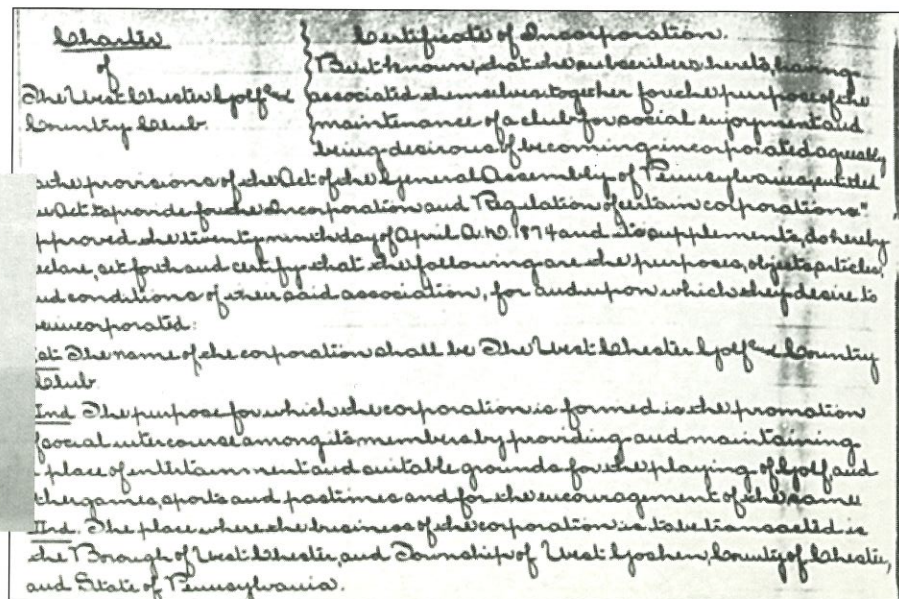 Charter
of
The West Chester Golf and
Country Club.
Certificate of Incorporation.
Be it known, that the subscribers hereto, having
associated themselves together for the purpose of the
maintenance of a club for social enjoyment and
being desirous of becoming incorporated agreeably
the provisions of the Act of the General Assembly of Pennsylvania, entitled
Act to provide for the Incorporation and Regulation of certain corporations"
pproved the twenty ninth day of April A.D. 1874 and its supplements, do hereby
eclare, set forth and certify that the following are the purposes, objects, articles,
nd conditions of their said association, for and upon which they desire to
be incorporated:
st The name of the corporation shall be The West Chester Golf and Country
Club.
IInd The purpose for which the corporation is formed is the promotion
f social intercourse among its members by providing and maintaining
place of entertainment and suitable grounds for the playing of Golf and
ther games, sports and pastimes and for the encouragement of the same
IInd. The place where the business of the corporation is to be transacted is
the Borough of West Chester, and Township of West Goshen, County of Chester,
and State of Pennsylvania.